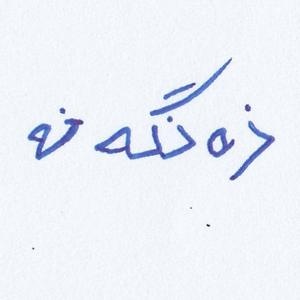 زەنگەنە